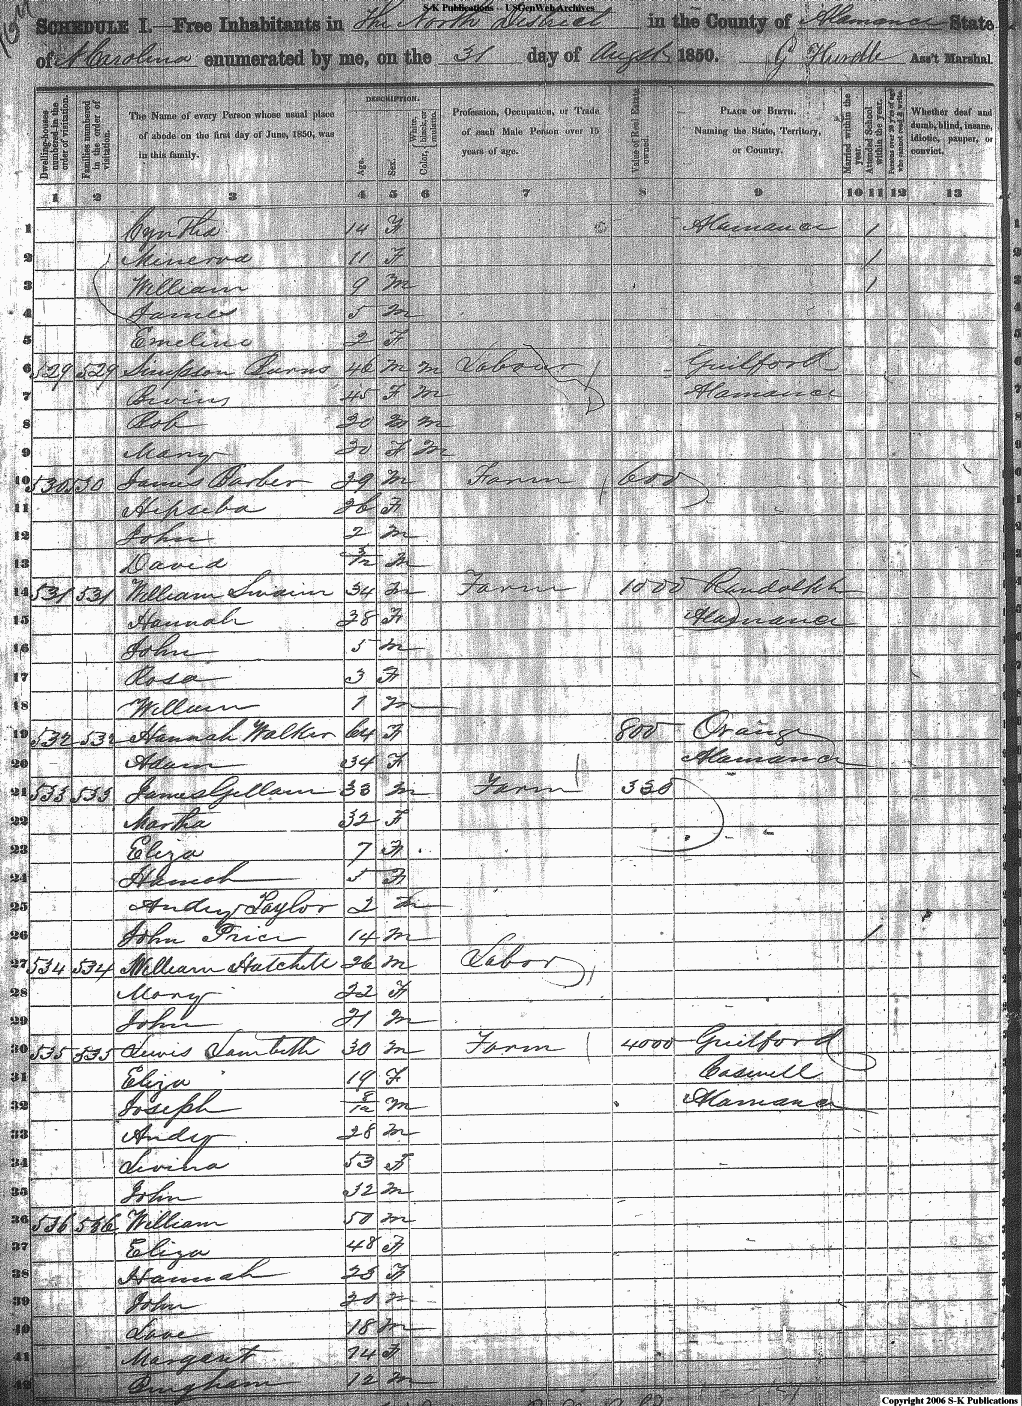 S-K Publications -- USGenWeb Archives
SCHEDULE I.—Free Inhabitants in The North District in the County of Alamance State
of N Carolina enumerated by me, on the 31 day of August 1850. G Hurdle Ass't Marshal.
Dwelling-houses numbered in the order of visitation.
Families numbered in the order of visitation.
The Name of every Person whose usual place of abode on the first day of June, 1850, was in this family.
DESCRIPTION.
Age.
Sex.
Color, White, black, or mulatto.
Profession, Occupation, or Trade of each Male Person over 15 years of age.
Value of Real Estate owned.
PLACE OF BIRTH. Naming the State, Territory, or Country.
Married within the year.
Attended School within the year.
Persons over 20 y'rs of age who cannot read & write.
Whether deaf and dumb, blind, insane, idiotic, pauper, or convict.
1 2 3 4 5 6 7 8 9 10 11 12 13
1 Cyntha 14 F Alamance 1 1
2 Minerva 11 F 1 2
3 William 9 m 1 3
4 James 5 m 4
5 Emeline 2 F 5
6 529 529 Simpson Burns 46 m m Labour Guilford 6
7 45 F m Alamance 7
8 Rob 30 m m 8
9 Mary 30 F m 9
10 530 530 James Barber 29 m Farm 600 10
11 Hipseba 26 F 11
12 John 2 m 12
13 David 3/12 m 13
14 531 531 William Swaim 34 m Farm 1000 Randolph 14
15 Hannah 38 F Alamance 15
16 John 5 m 16
17 Rosa 3 F 17
18 William 1 m 18
19 532 532 Hannah Walker 64 F 800 Orange 19
20 Adam 34 F Alamance 20
21 533 533 James Gillam 33 m Farm 330 21
22 Martha 32 F 22
23 Eliza 7 F 23
24 Hannah 5 F 24
25 Andy Taylor 2 m 25
26 John Price 14 m 1 26
27 534 534 William Hatchett 26 m Labor 27
28 Mary 22 F 28
29 John 21 m 29
30 535 535 Lewis Lambeth 30 m Farm 4000 Guilford 30
31 Eliza 19 F Caswell 31
32 Joseph 8/12 m Alamance 32
33 Andy 28 m 33
34 Levina 53 F 34
35 John 32 m 35
36 536 536 William 50 m 36
37 Eliza 48 F 37
38 Hannah 25 F 38
39 John 20 m 39
40 Love 18 m 40
41 Margaret 14 F 41
42 Bingham 12 m 42
Copyright 2006 S-K Publications